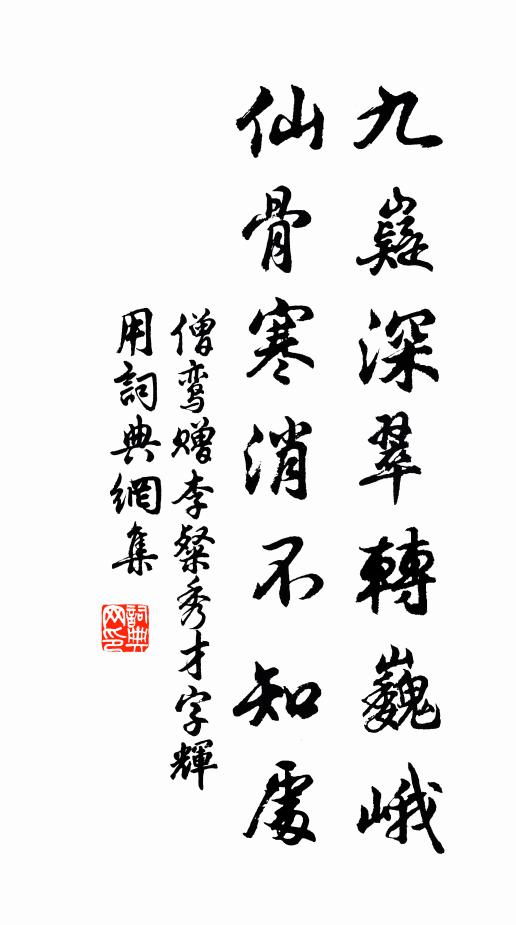 九嶷深翠轉巍峨
仙骨寒消不知處
僧鸾赠李粲秀才字輝
用詞典網集
詞典網印